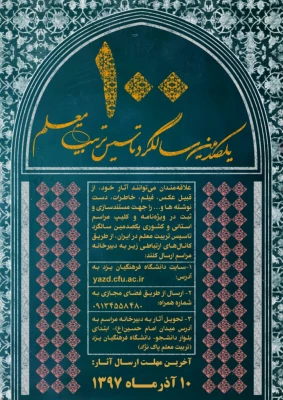 ۱۰۰
یکصدمین سالگرد تاسیس تربیت معلم
علاقه‌مندان می‌توانند آثار خود، از
قبیل عکس، فیلم، خاطرات، دست
نوشته ها و... را جهت مستندسازی و
ثبت در ویژه‌نامه و کلیپ مراسم
استانی و کشوری یکصدمین سالگرد
تاسیس تربیت معلم در ایران، از طریق
کانال‌های ارتباطی زیر به دبیرخانه
مراسم ارسال کنند:
۱-سایت دانشگاه فرهنگیان یزد به
آدرس: yazd.cfu.ac.ir
۲- ارسال از طریق فضای مجازی به
شماره همراه: ۰۹۱۳۴۵۵۸۴۸۰
۳- تحویل آثار به دبیرخانه مراسم به
آدرس میدان امام حسین(ع)، ابتدای
بلوار دانشجو، دانشگاه فرهنگیان یزد
(تربیت معلم پاک نژاد)
آخرین مهلت ارسال آثار:
۱۰ آذر ماه ۱۳۹۷